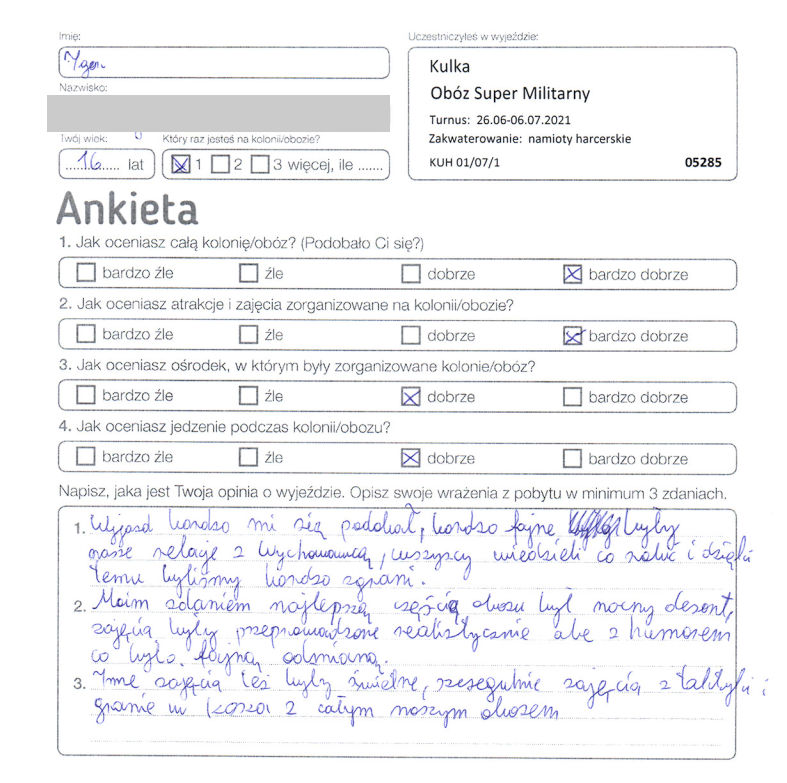 Imię:
Uczestniczyłeś w wyjeździe:
Ygor
Nazwisko:
Kulka
Obóz Super Militarny
Turnus: 26.06-06.07.2021
Zakwaterowanie: namioty harcerskie
KUH 01/07/1 05285
Twój wiek: Który raz jesteś na kolonii/obozie?
16 lat 1 2 3 więcej, ile .......
Ankieta
1. Jak oceniasz całą kolonię/obóz? (Podobało Ci się?)
bardzo źle źle dobrze bardzo dobrze
2. Jak oceniasz atrakcje i zajęcia zorganizowane na kolonii/obozie?
bardzo źle źle dobrze bardzo dobrze
3. Jak oceniasz ośrodek, w którym były zorganizowane kolonie/obóz?
bardzo źle źle dobrze bardzo dobrze
4. Jak oceniasz jedzenie podczas kolonii/obozu?
bardzo źle źle dobrze bardzo dobrze
Napisz, jaka jest Twoja opinia o wyjeździe. Opisz swoje wrażenia z pobytu w minimum 3 zdaniach.
1. Wyjazd bardzo mi się podobał, bardzo fajne były
nasze relacje z wychowawcą, wszyscy wiedzieli co robić i dzięki
temu byliśmy bardzo zgrani.
2. Moim zdaniem najlepszą częścią obozu był nocny desant,
zajęcia były przeprowadzone realistycznie ale z humorem
co było fajną odmianą.
3. Inne zajęcia też były świetne, szczególnie zajęcia z taktyki i
granie w kosza z całym naszym obozem